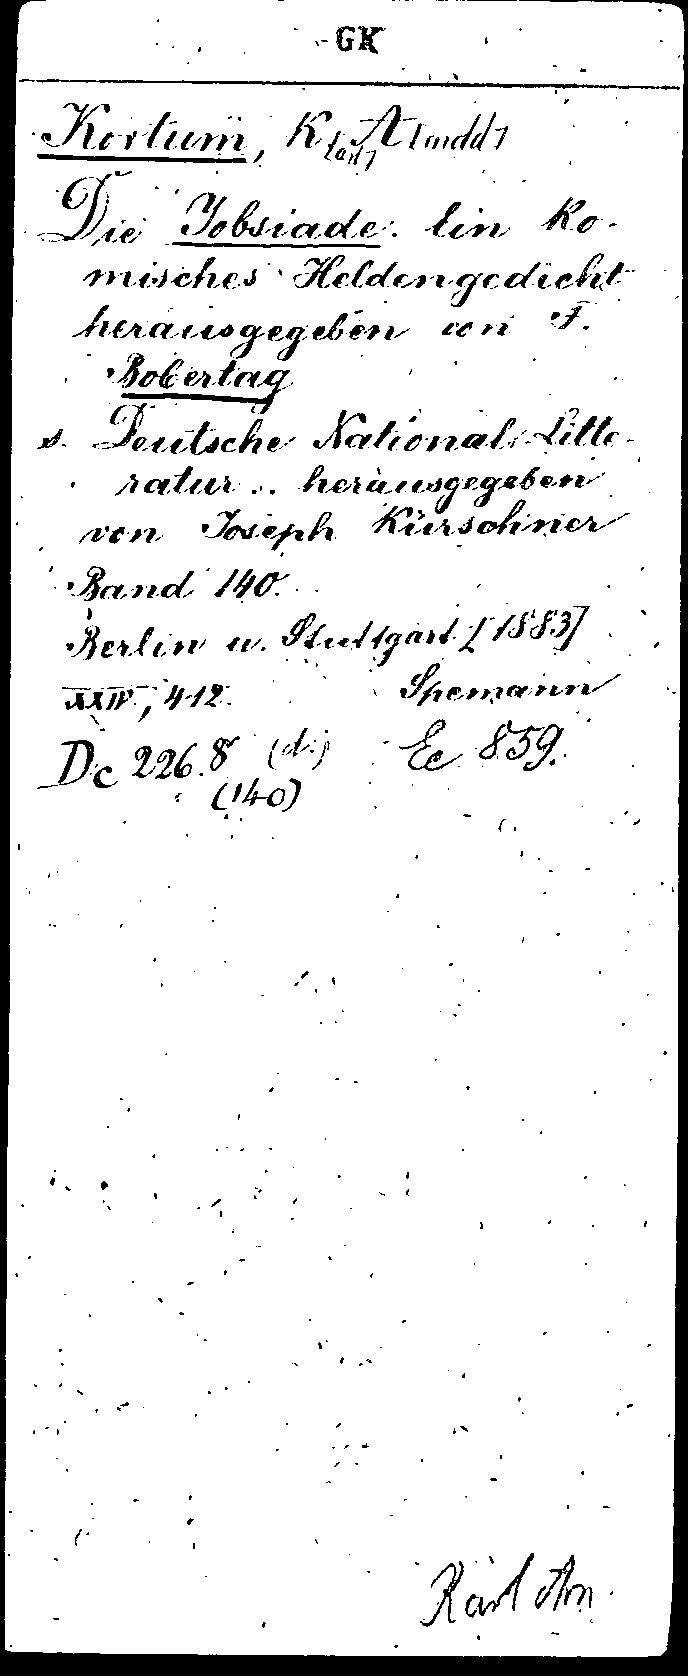 GK
Kortum, K[arl] A[rnold]
Die Jobsiade. Ein ko-
misches Heldengedicht
herausgegeben von F.
Bobertag
s. Deutsche National-Litte-
ratur .. herausgegeben
von Joseph Kürschner
Band 140.
Berlin u. Stuttgart [1883]
XXIV, 412. Spemann
Dc 226.8 (d.) Ec 859.
(140)
Karl Arn.